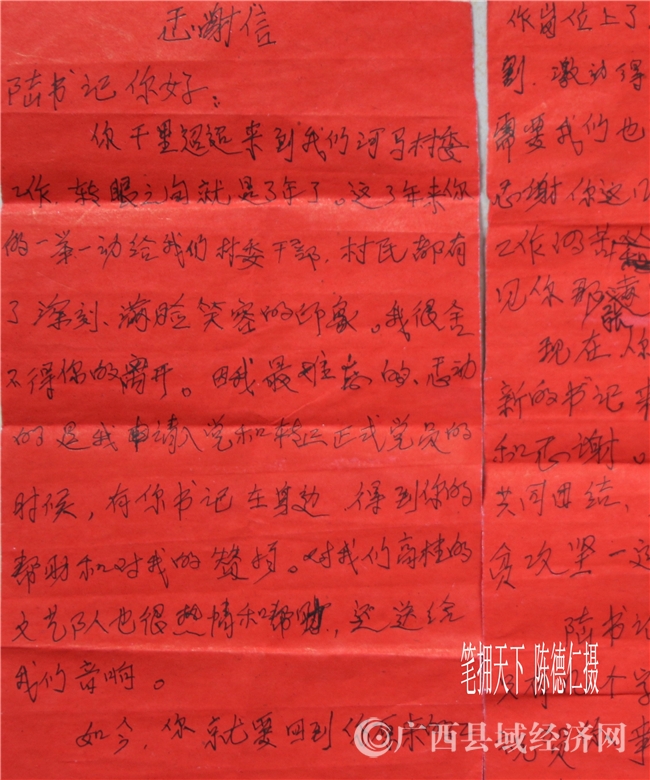 感谢信
陆书记你好:
你千里迢迢来到我们河马村委
工作,转眼之间就是3年了。这3年来你
的一举一动给我们村委干部,村民都有
了深刻、满脸笑容的印象。我很舍
不得你的离开。因我最难忘的、感动
的是我申请入党和转正正式党员的
时候,有你书记在身边,得到你的
帮助和对我的赞扬。对我们高桂的
文艺队人也很热情和帮助,还送给
我们音响。
如今,你就要回到你原来的工
作岗位上了,
割.激动得
需要我们也
感谢你这几
工作
见你那张
现在
新的书记来
和感谢。
共同团结、
贫攻坚一定
陆书记
个字
事
笔拥天下 陈德仁摄
广西县域经济网